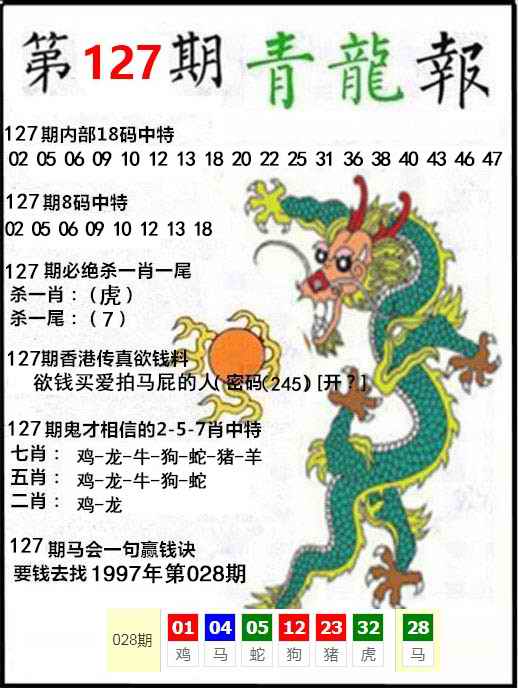 第127期青龍報
127期内部18码中特
02 05 06 09 10 12 13 18 20 22 25 31 36 38 40 43 46 47
127期8码中特
02 05 06 09 10 12 13 18
127期必绝杀一肖一尾
杀一肖：（虎）
杀一尾：（7）
127期香港传真欲钱料
欲钱买爱拍马屁的人（密码（245）[开？]
127期鬼才相信的2-5-7肖中特
七肖： 鸡-龙-牛-狗-蛇-猪-羊
五肖： 鸡-龙-牛-狗-蛇
二肖： 鸡-龙
127期马会一句赢钱诀
要钱去找1997年第028期
028期 01 04 05 12 23 32 28
鸡 马 蛇 狗 猪 虎 马